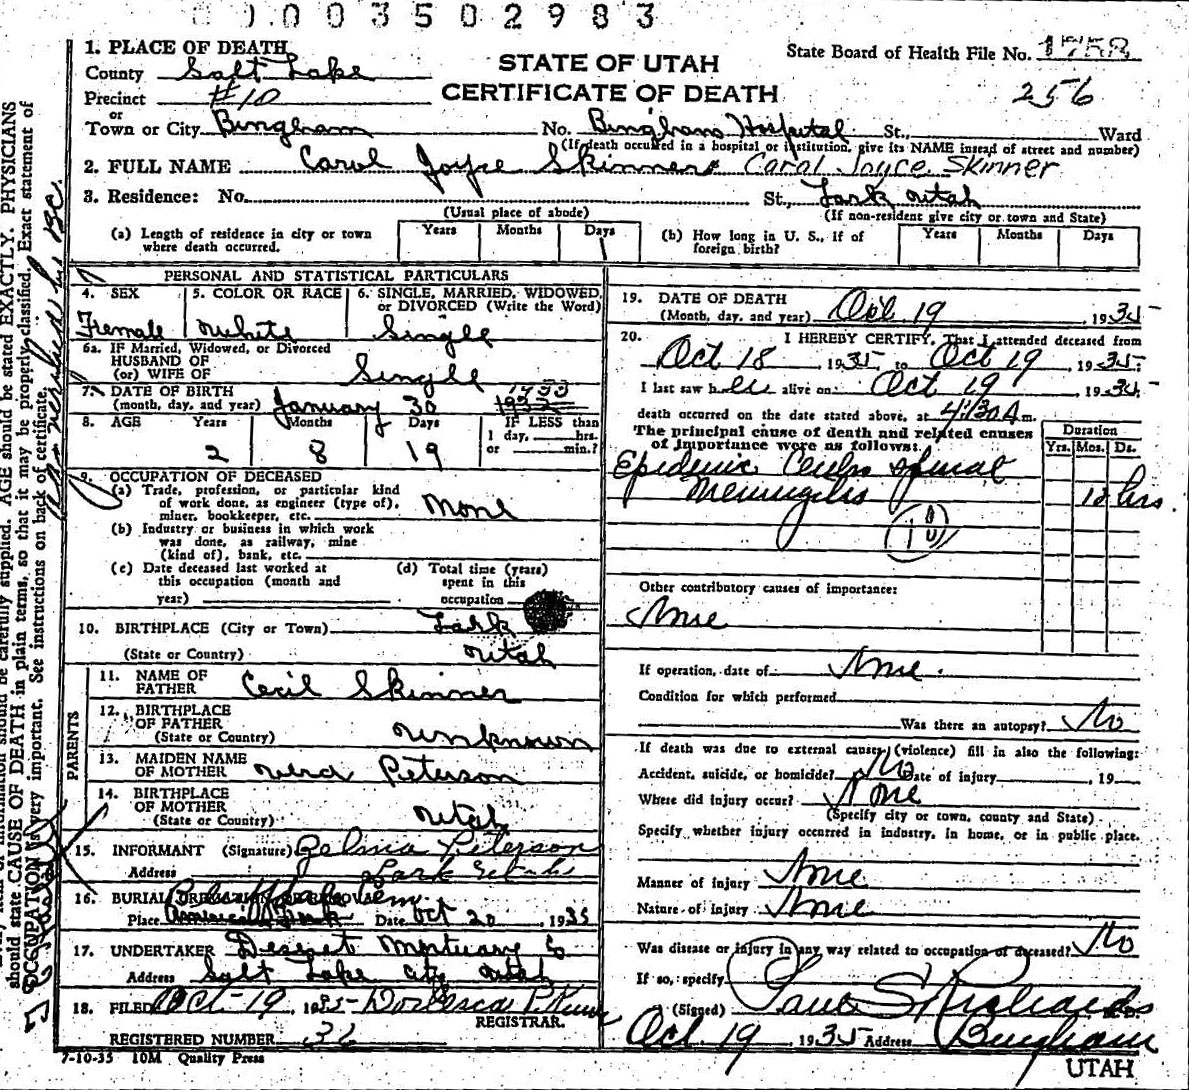 0 0 0 3 5 0 2 9 8 3
1. PLACE OF DEATH
STATE OF UTAH
CERTIFICATE OF DEATH
State Board of Health File No. 1758
256
County Salt Lake
Precinct #10
or
Town or City Bingham No. Bingham Hospital St., Ward
(If death occurred in a hospital or institution, give its NAME instead of street and number)
2. FULL NAME Carol Joyce Skinner Carol Joyce Skinner
3. Residence: No. St., Lark Utah
(Usual place of abode) (If non-resident give city or town and State)
(a) Length of residence in city or town where death occurred. Years Months Days 1
(b) How long in U. S., if of foreign birth? Years Months Days
PERSONAL AND STATISTICAL PARTICULARS
4. SEX Female
5. COLOR OR RACE White
6. SINGLE, MARRIED, WIDOWED, or DIVORCED (Write the Word) Single
6a. IF Married, Widowed, or Divorced
HUSBAND OF
(or) WIFE OF Single
7. DATE OF BIRTH
(month, day, and year) January 30 1933
8. AGE Years Months Days IF LESS than
1 day, hrs.
or min.?
2 8 19
9. OCCUPATION OF DECEASED
(a) Trade, profession, or particular kind
of work done, as engineer (type of),
miner, bookkeeper, etc. None
(b) Industry or business in which work
was done, as railway, mine
(kind of), bank, etc.
(c) Date deceased last worked at
this occupation (month and
year)
(d) Total time (years)
spent in this
occupation
10. BIRTHPLACE (City or Town) Lark
(State or Country) Utah
PARENTS
11. NAME OF
FATHER Cecil Skinner
12. BIRTHPLACE
OF FATHER
(State or Country) Unknown
13. MAIDEN NAME
OF MOTHER Peterson
14. BIRTHPLACE
OF MOTHER
(State or Country) Utah
15. INFORMANT (Signature) Zelma Peterson
Address Lark Utah
16. BURIAL, CREMATION OR REMOVAL
Place American Fork Date Oct 20, 1935
17. UNDERTAKER Deseret Mortuary Co
Address Salt Lake City Utah
18. FILED Oct-19 1935
REGISTRAR.
REGISTERED NUMBER 36
7-10-35 10M Quality Press
19. DATE OF DEATH
(Month, day, and year) Oct. 19, 1935
20. I HEREBY CERTIFY, That I attended deceased from
Oct 18, 1935, to Oct 19, 1935.
I last saw her alive on Oct 19, 1935,
death occurred on the date stated above, at 4:30 A m.
The principal cause of death and related causes
of importance were as follows: Duration
Yrs. Mos. Ds.
Epidemic Cerebro spinal
Meningitis 12 hrs.
Other contributory causes of importance:
None
If operation, date of None.
Condition for which performed
Was there an autopsy? No
If death was due to external causes (violence) fill in also the following:
Accident, suicide, or homicide? No Date of injury , 19
Where did injury occur? None
(Specify city or town, county and State)
Specify whether injury occurred in industry, in home, or in public place.
Manner of injury None
Nature of injury None
Was disease or injury in any way related to occupation of deceased? No
If so, specify
(Signed) Paul S Richards M.D.
Oct. 19 1935 Address Bingham
UTAH
should be carefully supplied. AGE should be stated EXACTLY. PHYSICIANS
should state CAUSE OF DEATH in plain terms, so that it may be properly classified. Exact statement of
OCCUPATION is very important. See instructions on back of certificate.